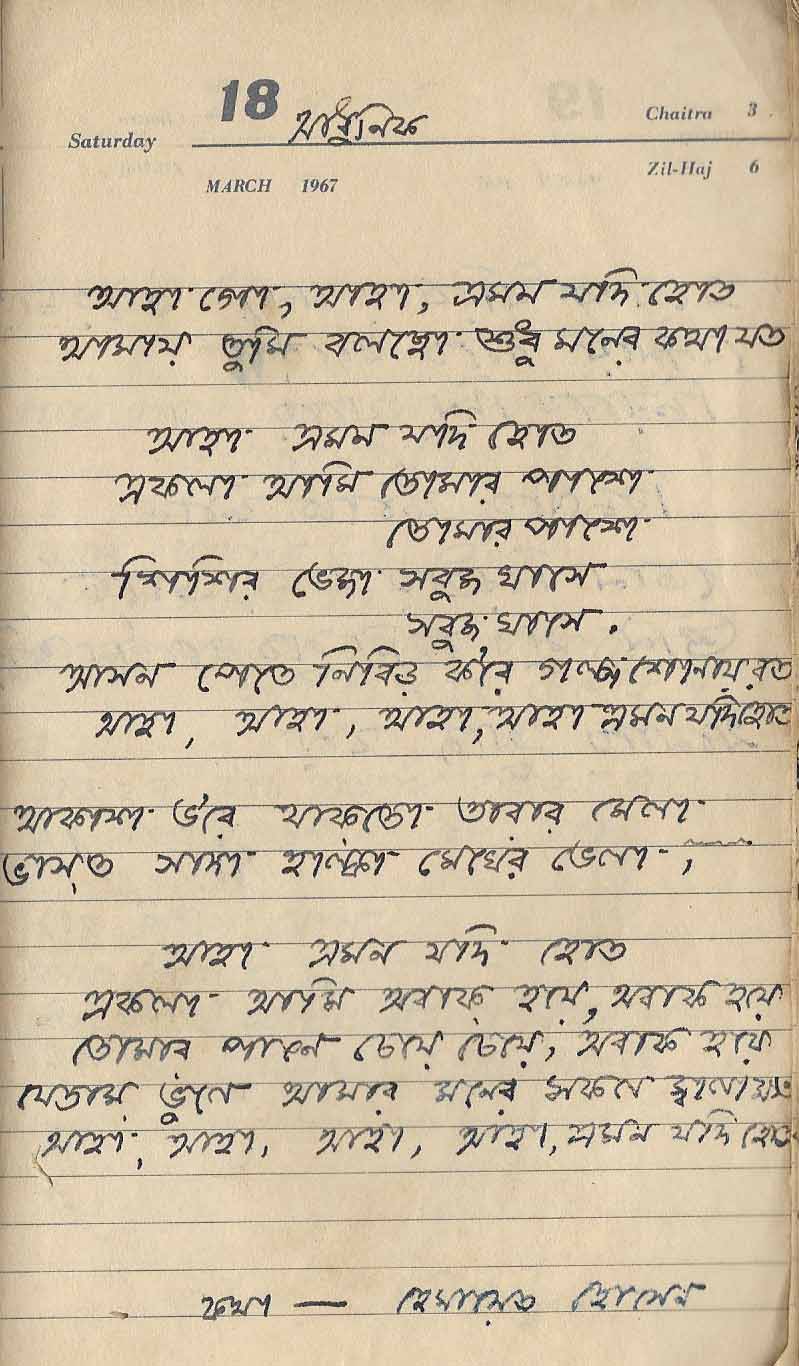 18 আধুনিক Chaitra 3
Saturday
MARCH 1967 Zil-Haj 6
আহা গো, আহা, এমন যদি হোত
আমায় তুমি বলছো শুধু মনের কথা যত
আহা এমন যদি হোত
একলা আমি তোমার পাশে
তোমার পাশে
শিশির ভেজা সবুজ ঘাসে
সবুজ ঘাসে.
আসন পেতে নিবিড় ক'রে গল্প শোনায় রত
আহা, আহা, আহা, আহা এমন যদি হোত
আকাশ ভ'রে থাকতো তারার মেলা
ভাসত সাদা হাল্কা মেঘের ভেলা,
আহা এমন যদি হোত
একলা আমি অবাক হয়ে, অবাক হয়ে
তোমার পানে চেয়ে চেয়ে, অবাক হয়ে
যেতাম ভুলে আমার মনের সকল
আহা, আহা, আহা, আহা, এমন যদি হোত
কথা — হেমায়েত হোসেন